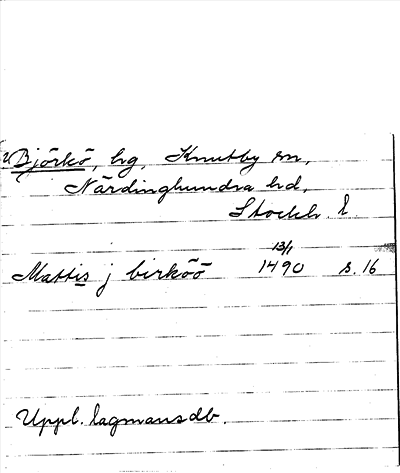 v. Björkö, hg, Knutby sn,
Närdinghundra hd,
Stockh. l.
13/1
Mattis j birköö 1490 s. 16
Uppl. lagmansdb.